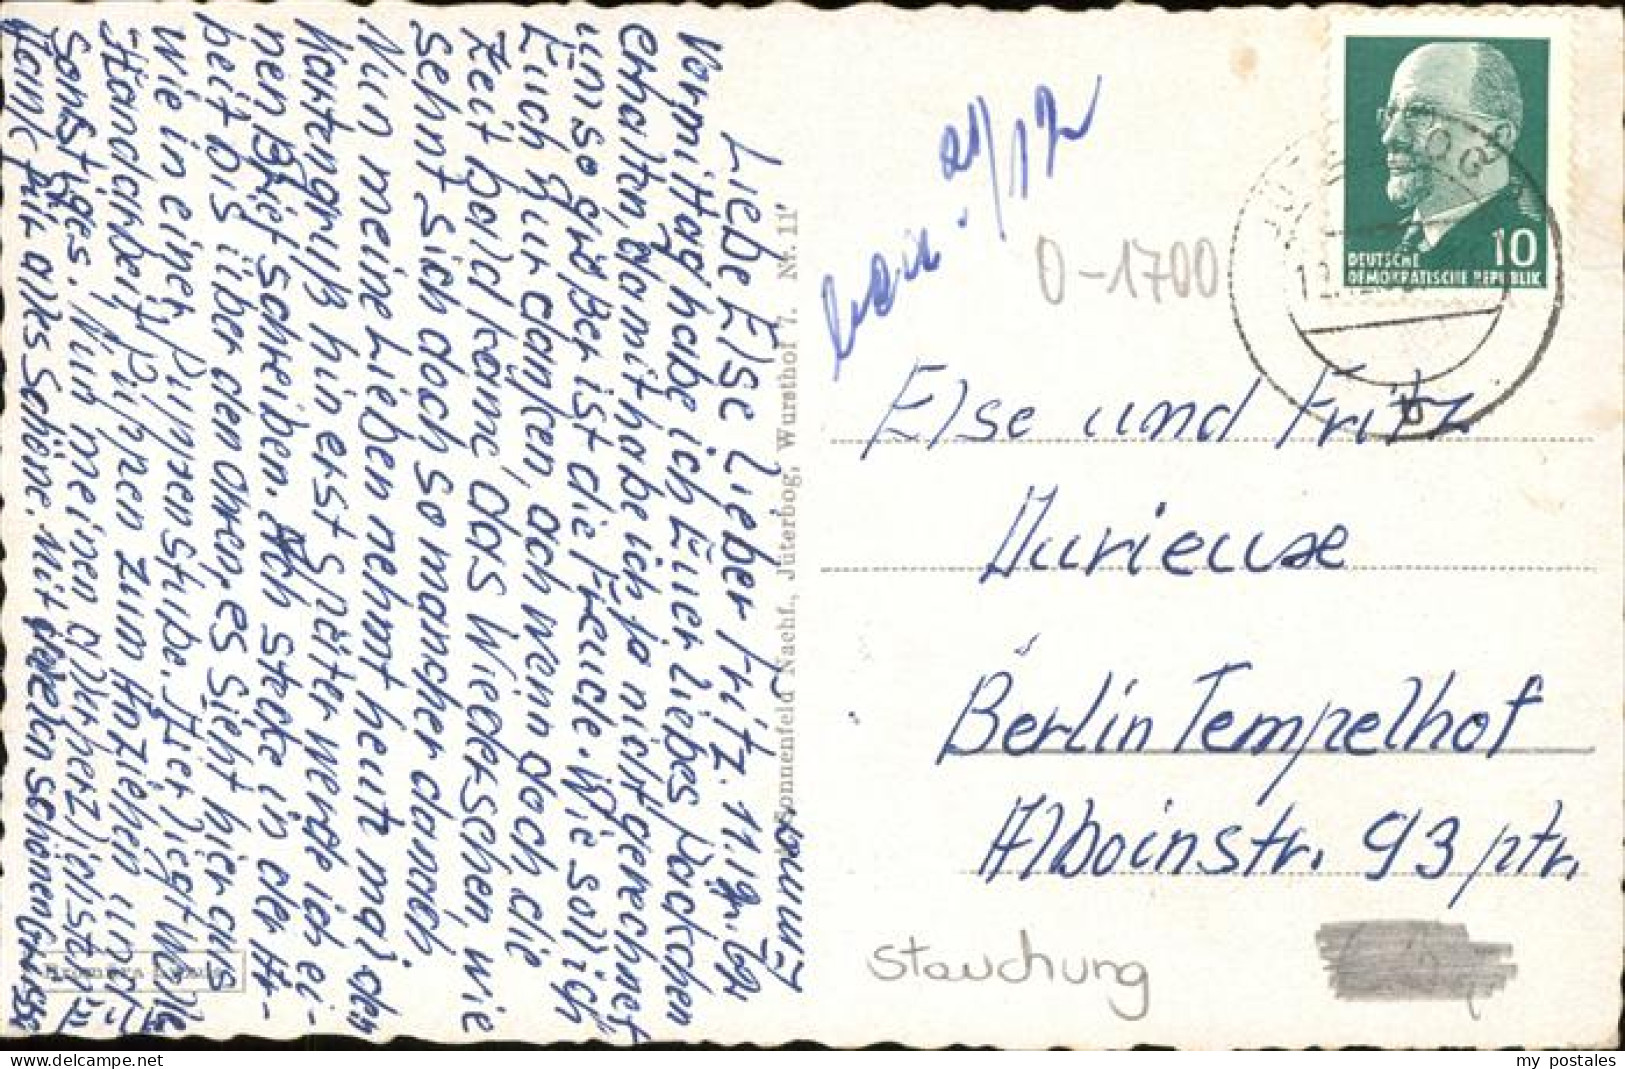 Liebe Else lieber Fritz. 11.12.62
Vormittag habe ich Euer liebes Päckchen
erhalten, damit habe ich ja nicht gerechnet
umso größer ist die Freude. Wie soll ich
Euch nur danken, ach wenn doch die
Zeit bald käme, das Wiedersehen, wie
sehnt sich doch so mancher danach
Nun meine Lieben nehmt heut mal den
Kartengruß hin erst später werde ich ei-
nen Brief schreiben. Ich stecke in der Ar-
beit bis über den ohren, es sieht hier aus
wie in einer Puppenstube. Hier liegt Wolle
dort Puppen zum Anziehen und
Sonstiges. Nun meinen allerherzlichsten
Dank für alles Schöne. Mit vielen schönen Grüße
Sonnenfeld Nachf., Jüterbog, Wursthof 7. Nr. 11
21/12
0-1700
DEUTSCHE
DEMOKRATISCHE REPUBLIK
10
JÜTERBOG
b
Else und Fritz
Durieuxe
Berlin Tempelhof
Alboinstr. 93 ptr.
Stauchung
my postales